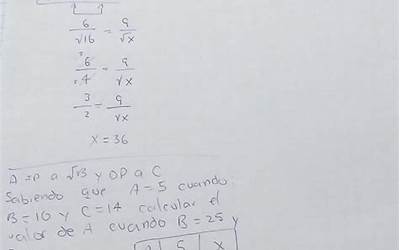 6/√16 = 9/√x
6/4 = 9/√x
3/2 = 9/√x
x = 36
A DP a √B y DP a C
Sabiendo que A=5 cuando
B=16 y C=14 calcular el
valor de A cuando B=25 y
5 x